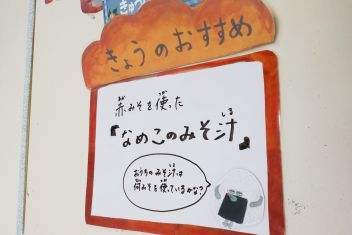 きょうのおすすめ
赤みそを使った
『なめこのみそ汁』
おうちのみそ汁は
何みそを使っているかな?